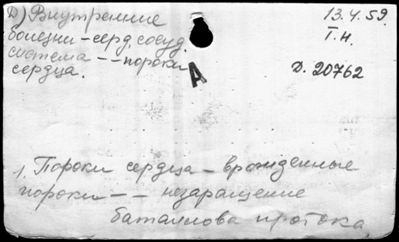 Д) Внутренние
болезни – серд. сосуд.
система – – пороки
сердца.
13.4.59.
Т.Н.
А
Д. 20762
1. Пороки сердца – врожденные
пороки – – незаращение
баталлова протока.